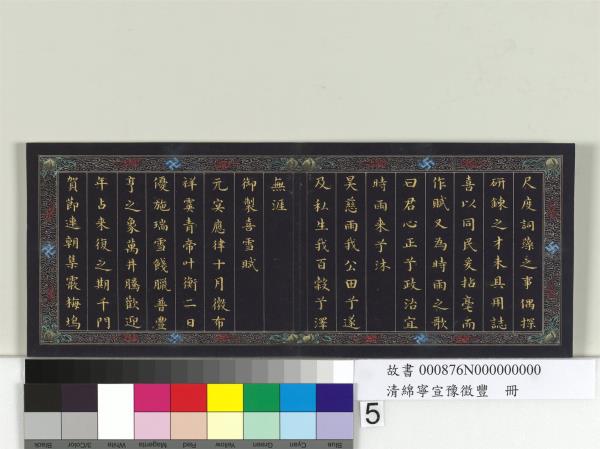 尺度詞藻之事偶探
研鍊之才未具用誌
喜以同民爰拈毫而
作賦又為時雨之歌
曰君心正兮政治宜
時雨來兮沐
昊慈雨我公田兮遂
及私生我百穀兮澤
無涯
御製喜雪賦
元冥應律十月微布
祥霙青帝叶衡二日
優施瑞雪餞臘普豐
亨之象萬井騰歡迎
年占來復之期千門
賀節連朝集霰梅塢
故書 000876N000000000
清綿寧宣豫徵豐 冊
5
Blue Cyan Green Yellow Red Magenta White 3/Color Black